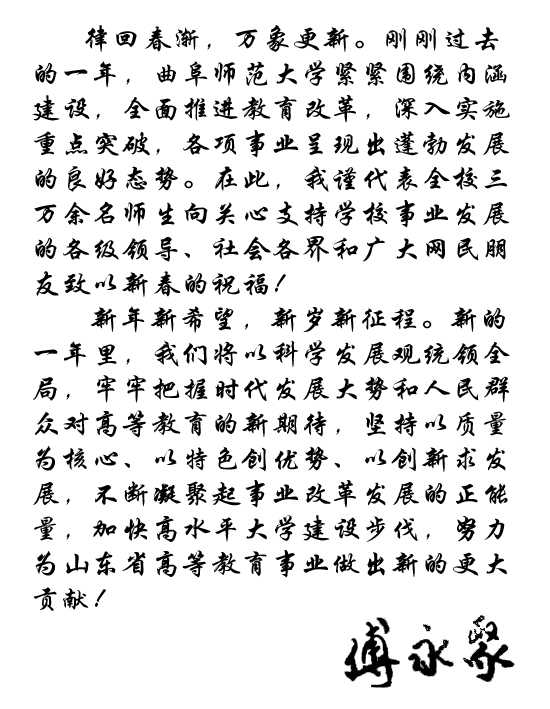 律回春渐，万象更新。刚刚过去
的一年，曲阜师范大学紧紧围绕内涵
建设，全面推进教育改革，深入实施
重点突破，各项事业呈现出蓬勃发展
的良好态势。在此，我谨代表全校三
万余名师生向关心支持学校事业发展
的各级领导、社会各界和广大网民朋
友致以新春的祝福！
新年新希望，新岁新征程。新的
一年里，我们将以科学发展观统领全
局，牢牢把握时代发展大势和人民群
众对高等教育的新期待，坚持以质量
为核心、以特色创优势、以创新求发
展，不断凝聚起事业改革发展的正能
量，加快高水平大学建设步伐，努力
为山东省高等教育事业做出新的更大
贡献！
傅永聚